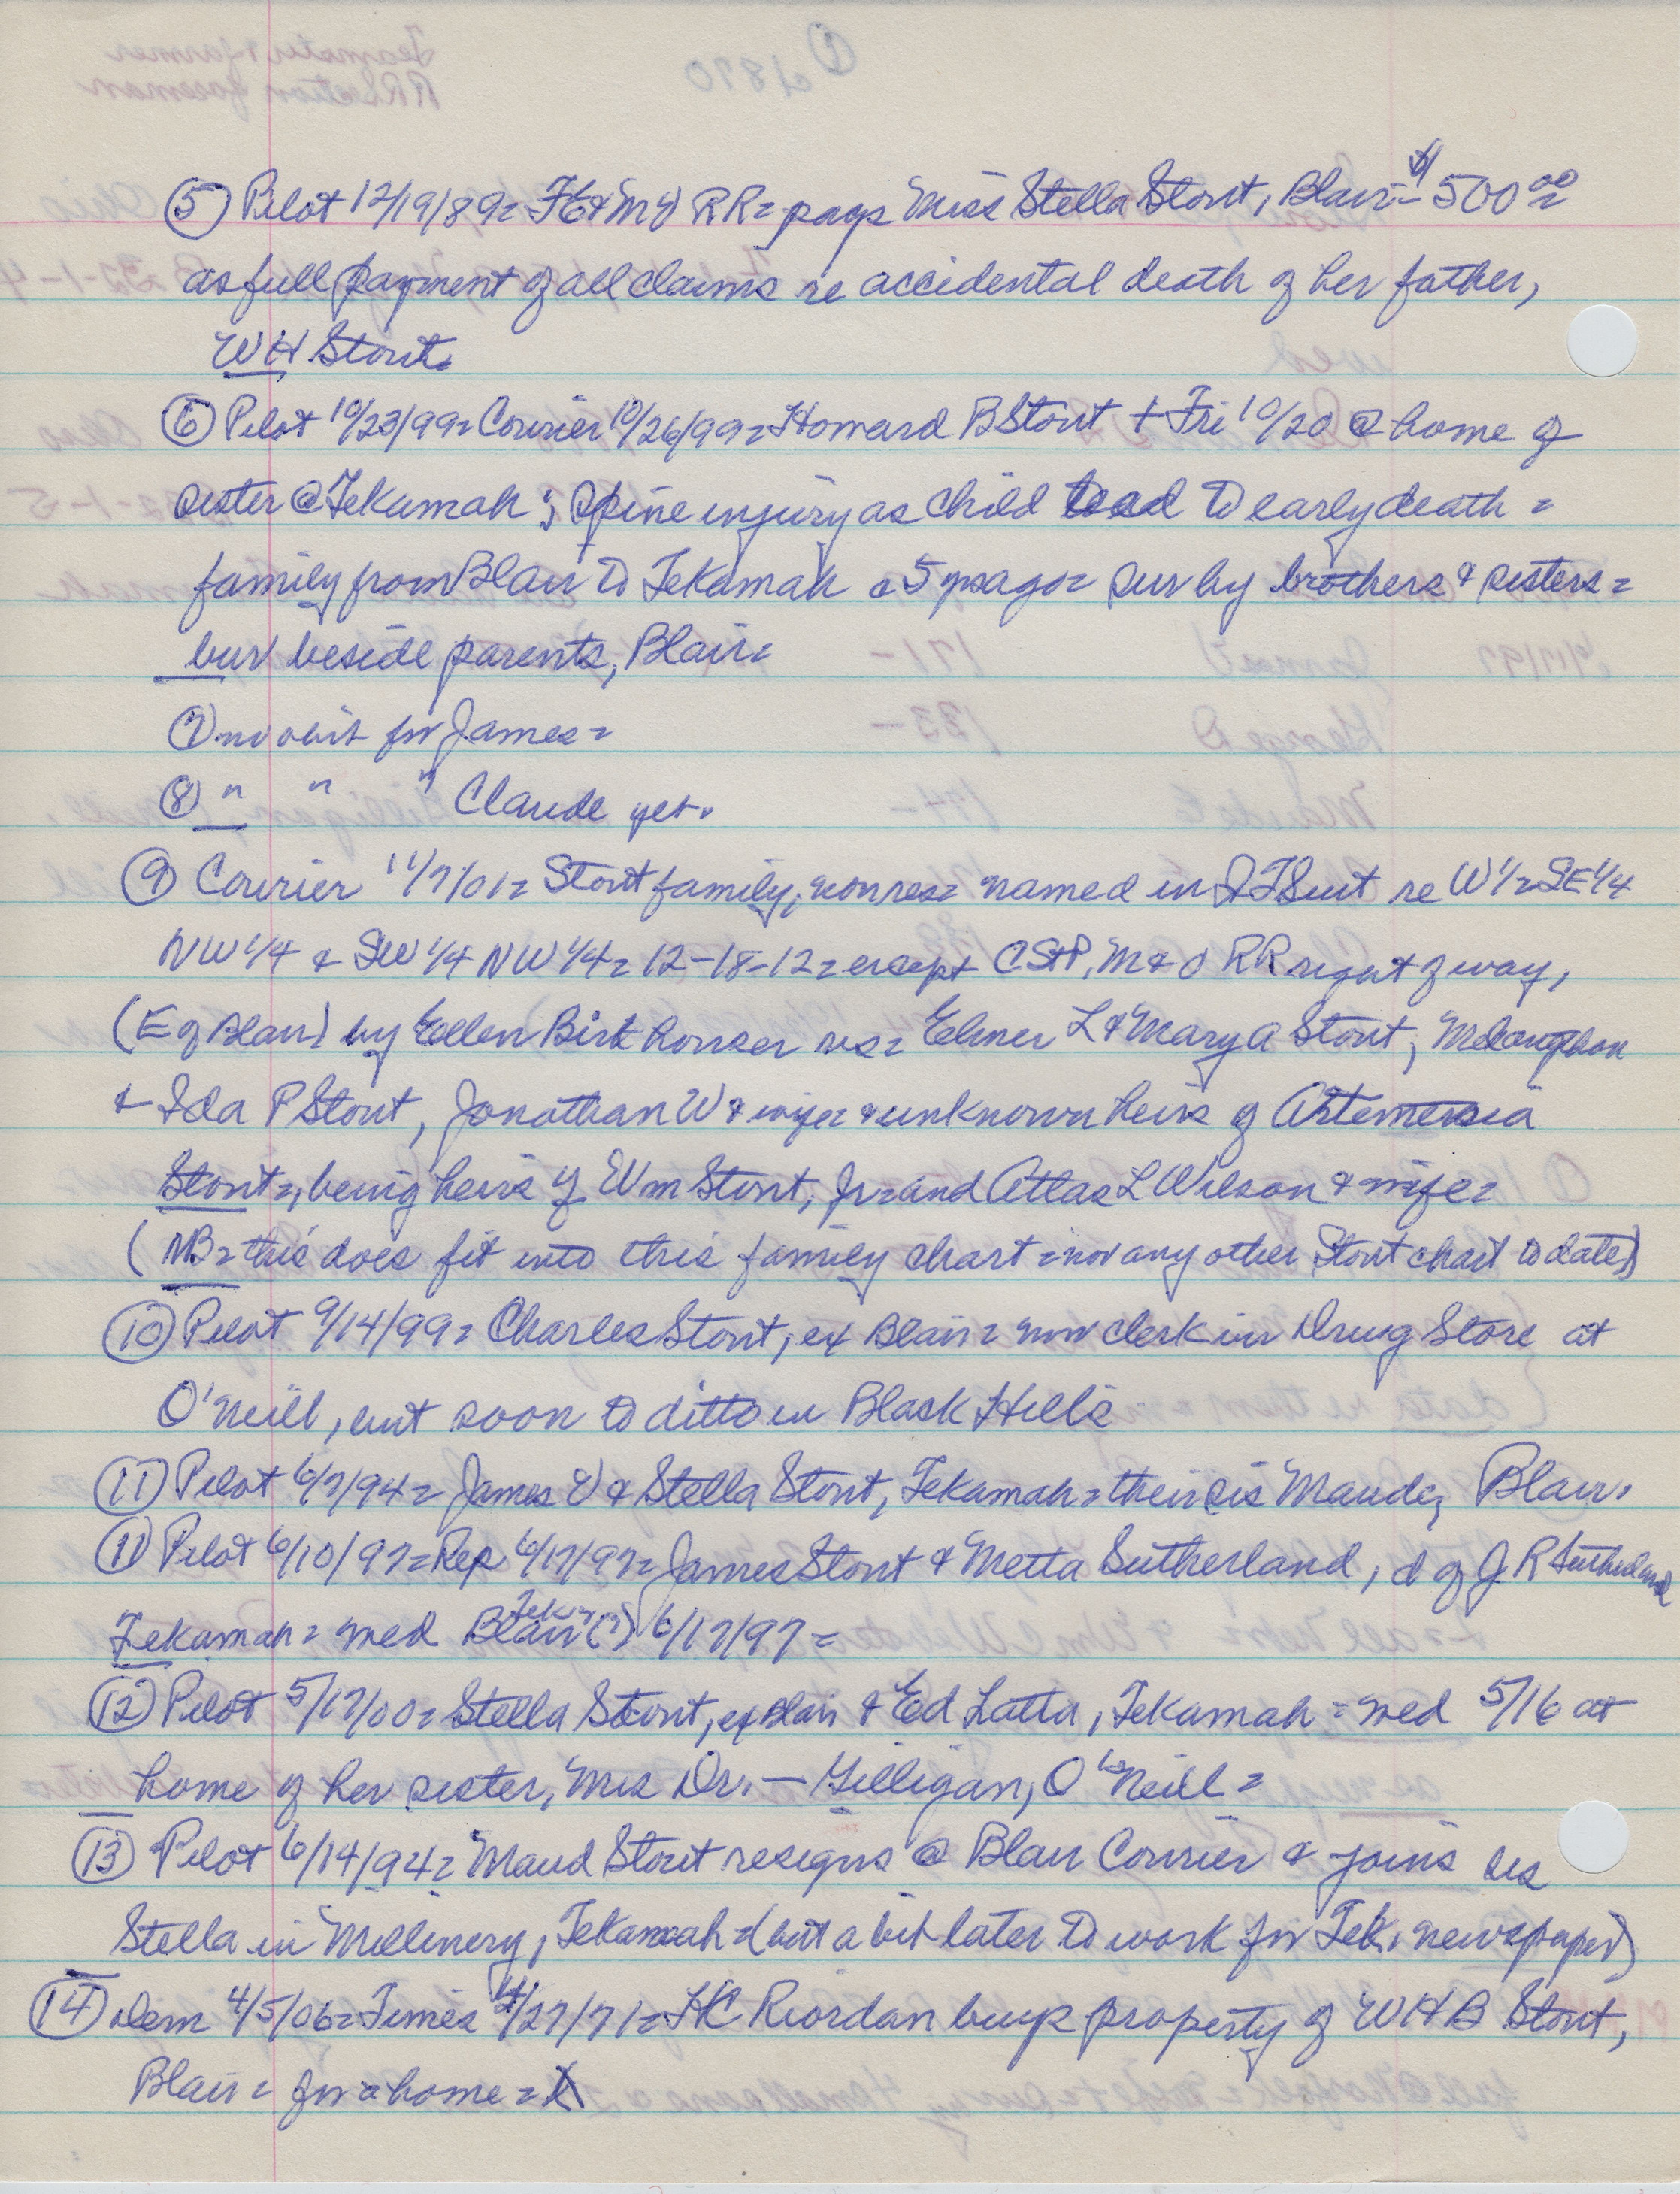 ⑤ Pilot 12/19/89= FE&MV RR= pays Miss Stella Stout, Blair= $500.00
as full payment of all claims re accidental death of her father,
WH Stout=
⑥ Pilot 10/23/99= Courier 10/26/99= Howard B Stout + Fri 10/20 @ home of
sister @ Tekamah ; Spine injury as child lead to early death =
family from Blair to Tekamah c 5 ys ago= sur by brothers & sisters=
bur beside parents, Blair=
⑦ no obit for James=
⑧ " " " Claude yet.
⑨ Courier 11/7/01= Stout family, nonres= named in QT Suit re W 1/2 SE 1/4
NW 1/4 & SW 1/4 NW 1/4= 12-18-12= except C StP, M & O RR right of way,
(E of Blair) by Ellen Birkhouser vs= Elmer L & Mary A Stout,
& Ida P Stout, Jonathan W & wife= & unknown heirs of Artemesia
Stout=, being heirs of Wm Stout, Jr= and Atlas L Wilson & wife=
(NB= this does fit into this family chart= nor any other Stout chart to date)
⑩ Pilot 9/14/99= Charles Stout, ex Blair= now clerk in Drug Store at
O'Neill, but soon to ditto in Black Hills
⑪ Pilot 6/7/94= James V & Stella Stout, Tekamah= their sis Maude, Blair.
⑪ Pilot 6/10/97= Rep 6/17/97= James Stout & Metta Sutherland, d of J R Sutherland
Tekamah= med Blair (?) Tek 6/17/97=
⑫ Pilot 5/17/00= Stella Stout, ex Blair & Ed Latta, Tekamah= med 5/16 at
home of her sister, Mrs Dr. — Gilligan, O'Neill=
⑬ Pilot 6/14/94= Maud Stout resigns @ Blair Courier & joins sis
Stella in Millinery, Tekamah= (but a bit later to work for Tek. newspaper)
⑭ Dem 4/5/06= Times 4/27/71= HC Riordan buys property of WHB Stout,
Blair= for a home=